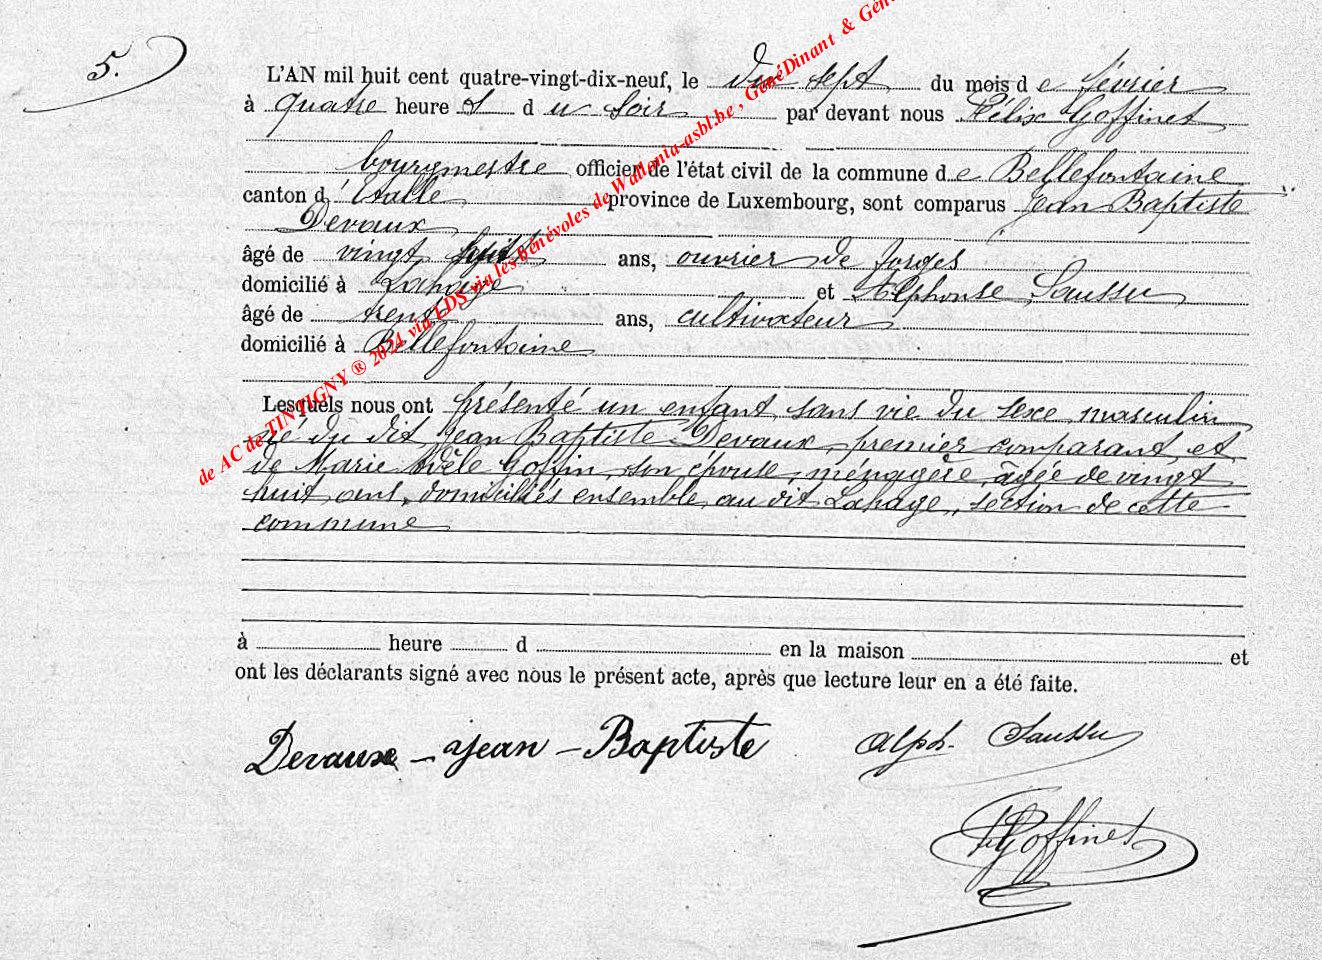 5.
L'AN mil huit cent quatre-vingt-dix-neuf, le dix sept du mois de février
à quatre heures du soir par devant nous Félix Goffinet
bourgmestre officier de l'état civil de la commune de Bellefontaine
canton d'Etalle province de Luxembourg, sont comparus Jean Baptiste
Devaux
âgé de vingt ans, ouvrier de forges
domicilié à Lahage et Alphonse Saussu
âgé de trente ans, cultivateur
domicilié à Bellefontaine
Lesquels nous ont présenté un enfant sans vie du sexe masculin
né du dit Jean Baptiste Devaux, premier comparant, et
de Marie Adèle Goffin, son épouse, ménagère, âgée de vingt
huit ans, domiciliés ensemble au dit Lahage, section de cette
commune
à heure d en la maison et
ont les déclarants signé avec nous le présent acte, après que lecture leur en a été faite.
Devaux - Jean - Baptiste Alph. Saussu
F Goffinet
de AC de TINTIGNY ® 2024 via LDS via les bénévoles de Wallonia-asbl.be, GénéDinant & Géné